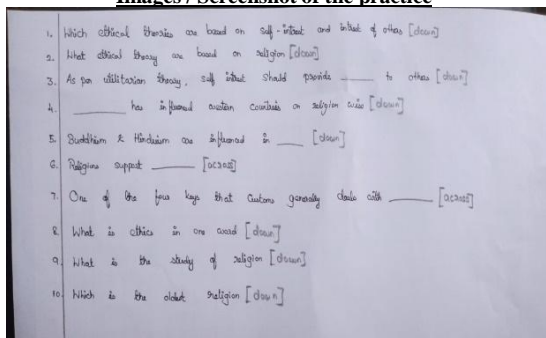 Images / Screenshot of the practice
1. Which ethical theories are based on self-intrest and intrest of others [down]
2. What ethical theory are based on religion [down]
3. As per utilitarian theory, self intrest should provide ______ to others [down]
4. ______ has influenced eastern countries on religion wise [down]
5. Buddhism & Hinduism are influenced in ____ [down]
6. Religions support ______ [across]
7. One of the four keys that Customs generally deals with ______ [across]
8. What is ethics in one word [down]
9. What is the study of religion [down]
10. Which is the oldest religion [down]